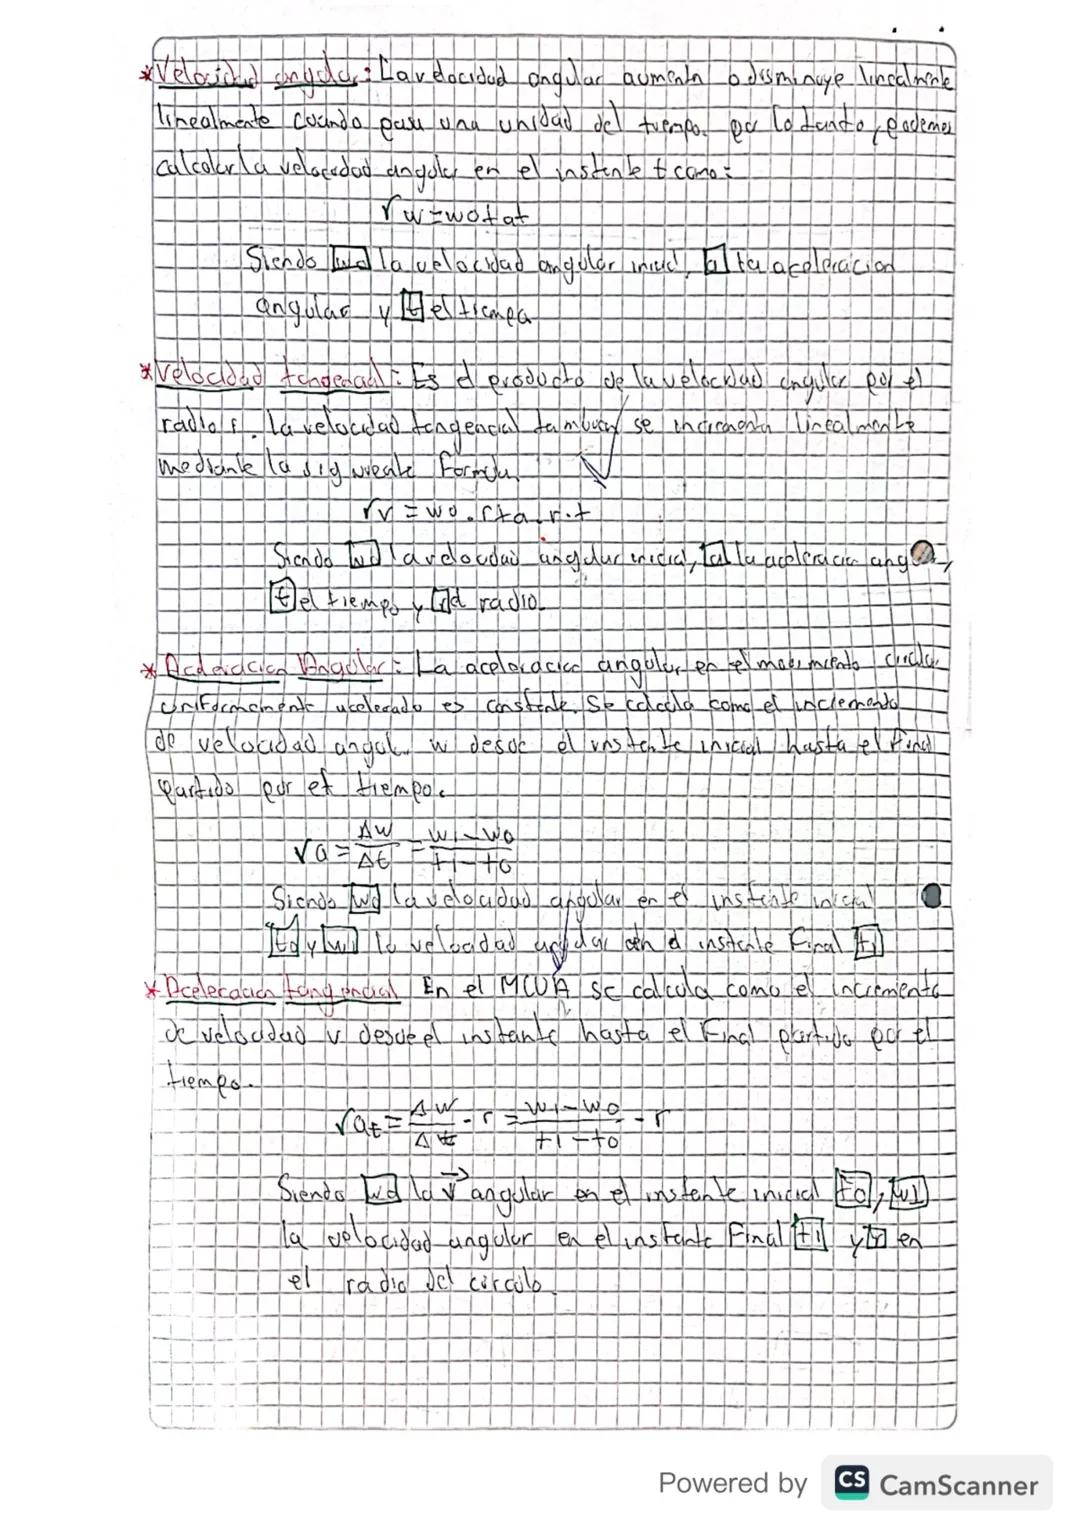 *Velocidad angular: La velocidad angular aumenta o disminuye linealmente
linealmente cuando pasa una unidad del tiempo. por lo tanto, podemos
calcolar la velocidad angular en el instante t como:
√ w=wo+at
Siendo wo la velocidad angular inicial, a la aceleracion
angular y t el tiempo
*Velocidad tangencial: Es el producto de la velocidad angular por el
radio r. la velocidad tangencial tambien se incrementa linealmente
mediante la siguiente formula.
√v = wo.r+a.r.t
Siendo wo la velocidad angular inicial, a la aceleracion angular,
t el tiempo y r el radio.
* Aceleracion Angular: La aceleracion angular en el movimiento circular
uniformemente acelerado es constante. Se calcula como el incremento
de velocidad angular w desde el instante inicial hasta el final
partido por el tiempo.
√a = Δw/Δt = w1-wo/t1-to
Siendo wo la velocidad angular en el instante inicial
to y w1 la velocidad angular en el instante final t1
* Aceleracion tangencial En el MCUA se calcula como el incremento
de velocidad v desde el instante hasta el final partido por el
tiempo.
√at = Δw/Δt - r = w1-wo/t1-to - r
Siendo wo la v→ angular en el instante inicial to, w1
la velocidad angular en el instante final t1 y r en
el radio del circulo.
Powered by CS CamScanner